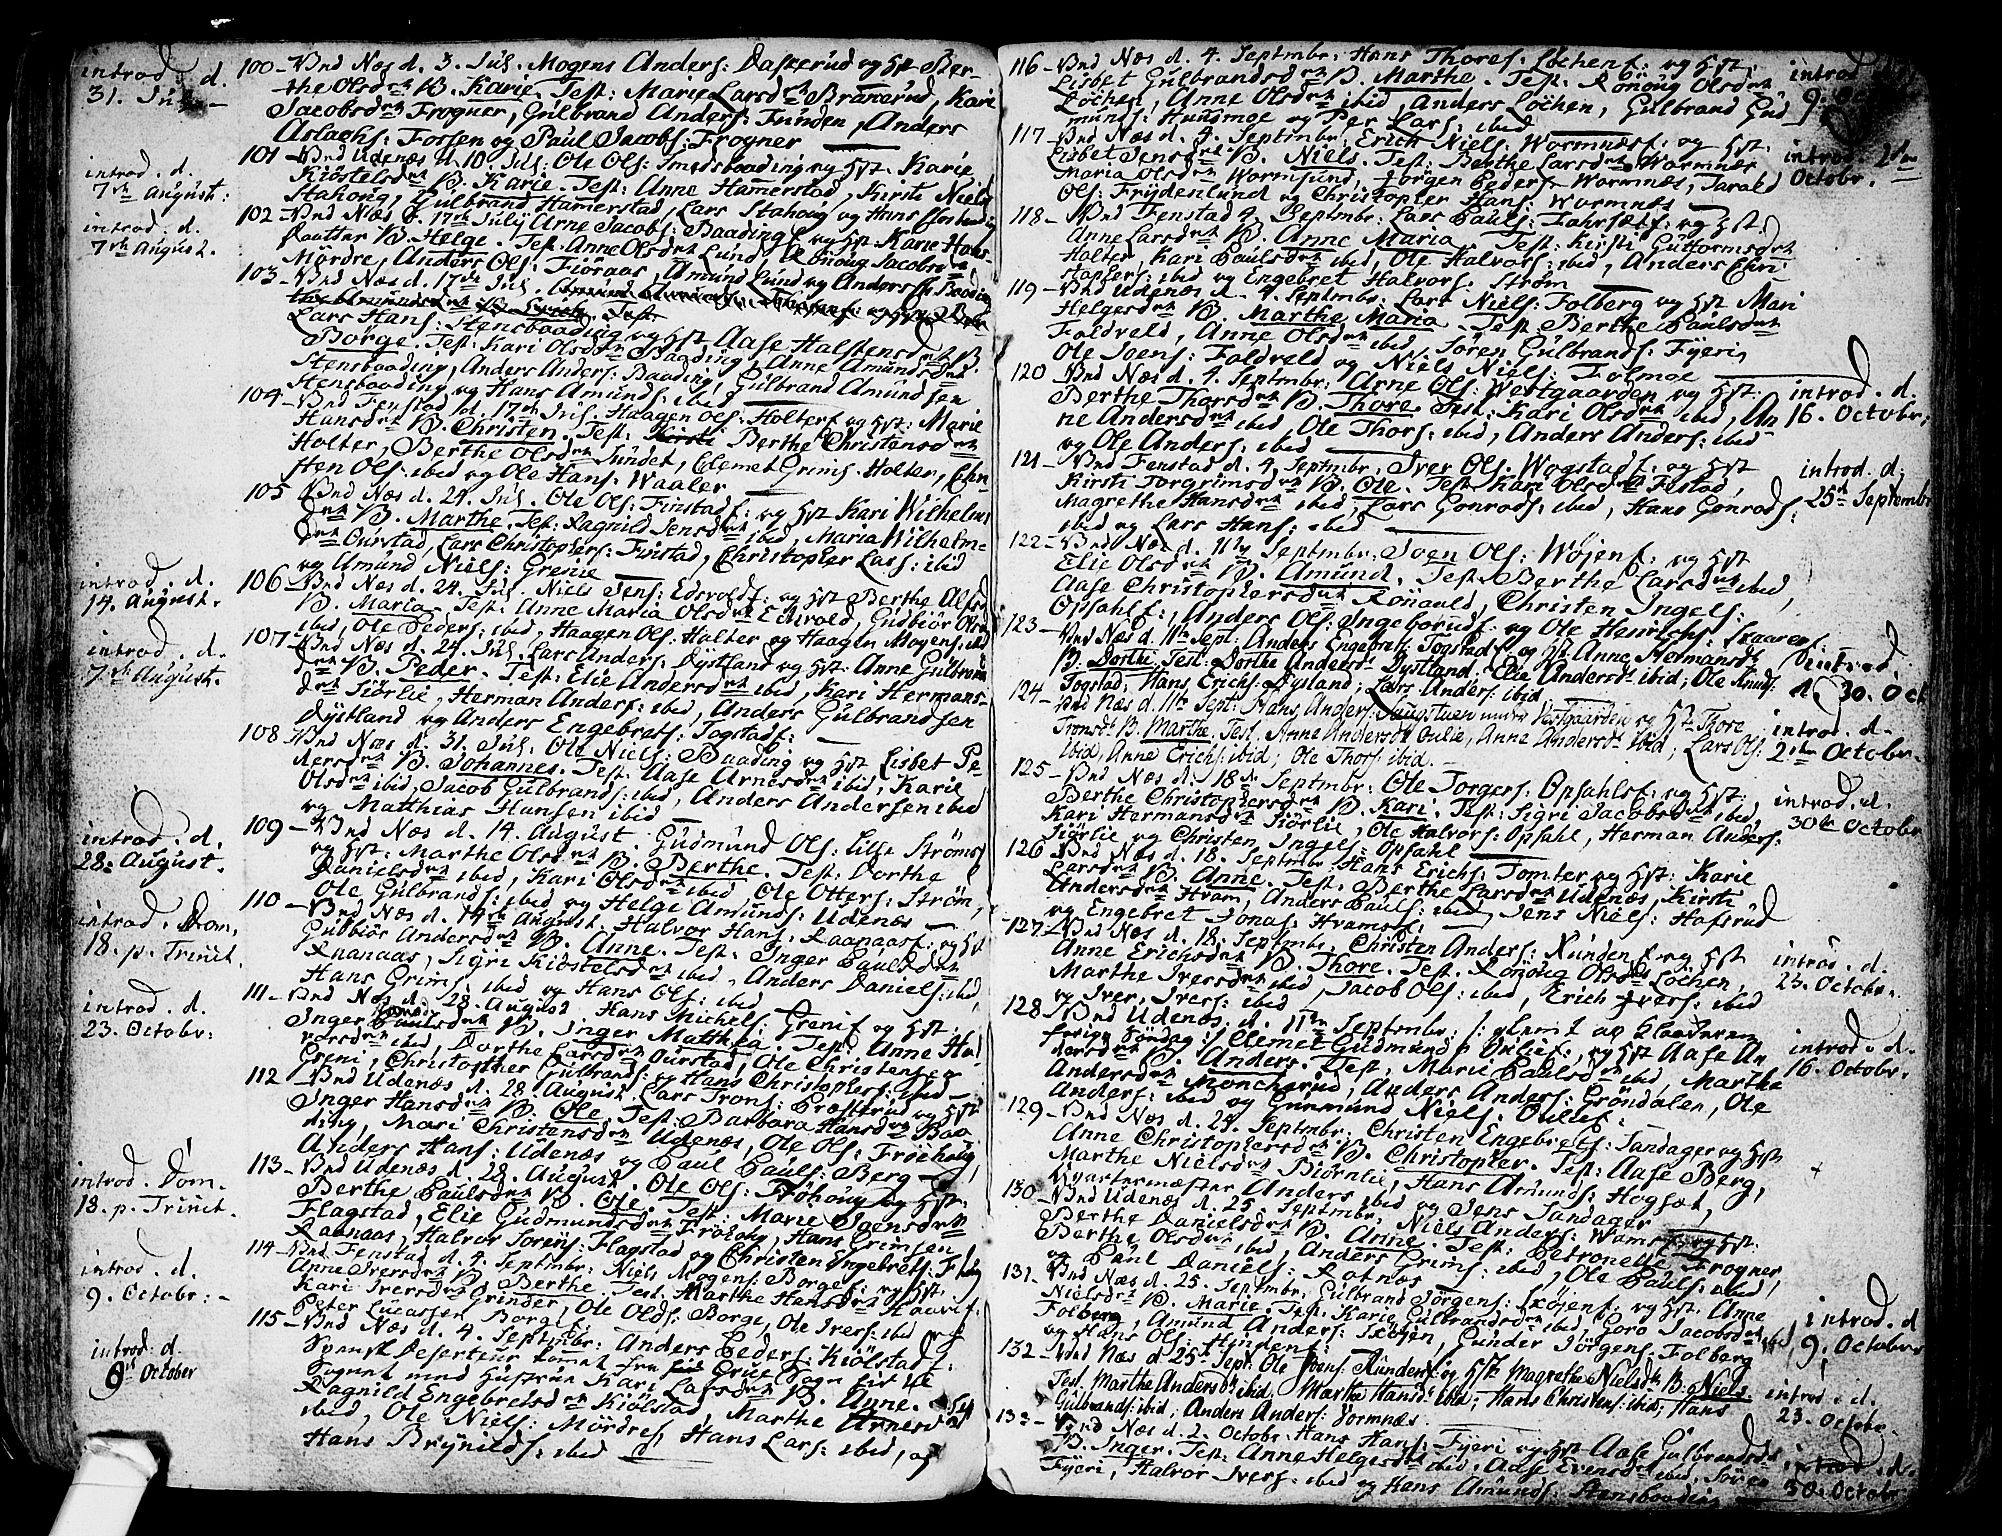 introd. d.
31. Jul. –
100 – Und Næs d. 3. Jul. Mogens Anders: Daskerud og Hst Ber-
the Olsdr B. Karie. Test: Marie Larsdr Branerud, Kari
Jacobsdr Frogner, Gulbrand Anders: Funden, Anders
Aslachs: Fossen og Paul Jacobs: Frogner
introd. d.
7th August:
101 – Und Udenæs d. 10 Jul. Ole Ols: Smedsbaading og Hst. Karie
Kiöstelsdr B. Karie. Test: Anne Hamerstad, Kirsti Niels
Stahoug, Gulbrand Hamerstad, Lars Stahoug og Hans
introd. d.
7th August.
102 – Und Næs d. 17th July Arne Jacobs: Baading og Hst Karie Hans-
Daatter B. Helge. Test: Anne Olsdr Lund, Rönoug Jacobsdr
Mördre, Anders Ols: Fiöraas, Amund Lund og Anders Baading
103 – Und Næs d. 17de Jul.
Lars Hans: Stensbaading og Hst Aase Halstensdr B.
Börge. Test: Kari Olsdr Baading, Anne Amundsdr
Stensbaading, Anders Anders: Baading, Gulbrand Amundsen
Stensbaading og Hans Amunds: ibid
104 – Und Fenstad d. 17th Jul. Haagen Ols: Holters og Hst: Marie
Hansdr B. Christen. Test: Berthe Christensdr
Holter, Berthe Olsdr Sundet, Clemet Grims: Holter, Chri-
sten Ols: ibid og Ole Hans: Waaler
105 Und Næs d. 24. Jul. Ole Ols: Finstads: og Hst Kari Wilhelms
dr B. Marthe. Test: Ragnild Jensdr ibid, Maria Wilhelm-
dr Ourstad, Lars Christophers: Finstad, Christopher Lars: ibid
og Amund Niels: Grenie
introd. d.
14. August.
106 – Und Næs d. 24. Jul. Niels Jens: Edsvolds: og Hst Berthe Alfsd
B. Maria. Test: Anne Maria Olsdr Edsvold, Gudbiör Olsdr
ibid, Ole Peders: ibid, Haagen Ols: Holter og Haagen Mogens: ibid
introd. d.
7th August.
107 – Und Næs d. 24. Jul. Lars Anders: Dystland og Hst: Anne Gulbrands
dr B. Peder. Test: Elie Andersdr ibid, Kari Hermans-
dr Siörlie, Herman Anders: ibid, Anders Gulbrandsen
Dystland og Anders Engebrets: Togstads:
108 Und Næs d. 31. Jul. Ole Niels: Baading og Hst Lisbet Pe-
dersdr B. Johannes. Test: Aase Arnesdr ibid, Karie
Olsdr ibid, Jacob Gulbrands: ibid, Anders Andersen ibid
og Matthias Hansen ibid
introd. d.
28. August.
109 – Und Næs d. 14. August. Gudmund Ols: Lille Ströms
og Hst: Marthe Olsdr B. Berthe. Test: Dorthe
Danielsdr ibid, Kari Olsdr ibid Ole Otters: Ström,
Ole Gulbrands: ibid og Helge Amunds: Udenæs
introd. Dom.
18. p. Trinit.
110 – Und Næs d. 14th August. Halvor Hans: Raanaas: og Hst
Gulbiör Andersdr B. Anne. Test: Inger Paulsdr
Raanaas, Sigri Kiöstelsdr ibid, Anders Daniels: ibid
Hans Grims: ibid og Hans Ols: ibid
introd. d.
23. Octobr:
111 – Und Næs d. 28. August Hans Michels: Grenis og Hst.
Inger Paulsdr B. Inger Matthea. Test: Anne Hal-
vorsdr ibid, Dorthe Larsdr Ourstad, Ole Christensen
Greni, Christopher Gulbrands: og Hans Christophers: ibid
112 Und Udenæs d. 28. August. Lars Trons: Præsterud og Hst
Inger Hansdr B. Ole. Test: Barbara Hansdr Baa-
ding, Mari Christensdr Udenæs, Ole Ols: Fröehoug,
Anders Hans: Udenæs og Paul Pauls: Berg
introd. Dom.
18. p. Trinit.
113 – Und Udenæs d. 28. August. Ole Ols: Fröhoug og Hst:
Berthe Paulsdr B. Ole. Test: Marie Svensdr
Flagstad, Elie Gudmundsdr Fröhoug, Hans Grimsen
Raanaas, Halvor Sörens: Flagstad og Christen Engebrets: Flag
introd. d.
9. Octobr: –
114 – Und Fenstad d. 4. Septembr: Niels Mogens: Borges: og Hst.
Anne Iversdr B. Berthe. Test. Marthe Hansdr Haavis
Kari Iversdr Grinder, Ole Olds: Borge, Ole Ivers: ibid og
Peter Lucassen Borge:
introd. d.
9de October
115 – Und Næs d. 4. Septembr: Anders Peders: Kiölstad:
Svensk Deserteur kommet fra Grue Sogn
Sognet med Hustrue Kari Larsdr B. Anne. Test
Ragnild Engebretsdr Kiölstad, Marthe Arnesdr
ibid, Ole Niels: Mördre, Hans Lars: ibid, og
Hans Brynilds: ibid
116 – Und Næs d. 4. Septembr: Hans Thores: Löchens: og Hst:
Lisbet Gulbrandsdr B. Marthe. Test. Rönoug Olsdr
Löchen, Anne Olsdr ibid, Anders Löchen, Gulbrand Gud
munds: Hunsmoe og Per Lars: ibid
introd.
9.
117 – Und Næs d. 4. Septembr: Erich Niels: Wormnæs: og Hst.
Lisbet Jensdr B. Niels. Test: Berthe Larsdr Wormnæs
Maria Olsdr Wormsund, Jörgen Peders: Wormnæs, Tarald
Ols: Frydenlund og Christopher Hans: Wormnæs
introd. 2den
Octobr.
118 – Und Fenstad 4. Septembr: Lars Pauls: Fahrsæts: og Hst.
Anne Larsdr B. Anne Maria. Test: Kirsti Guttormsdr
Holter, Kari Paulsdr ibid, Ole Halvors: ibid, Anders Chri-
stophers: ibid og Engebret Halvors: Ström
119 – Und Udenæs d. 4. Septembr: Lars Niels: Folberg og Hst Mari
Helgesdr B. Marthe Maria. Test Berthe Paulsdr
Foldveld, Anne Olsdr ibid, Sören Gulbrands: Fyeri,
Ole Svens: Foldveld og Niels Niels: Folmoe
120 Und Næs d. 4. Septembr: Arne Ols: Westgaarden og Hst:
Berthe Thorsdr B. Thore. Test: Kari Olsdr ibid, An
ne Andersdr ibid, Ole Thors: ibid, Anders Anders: ibid
og Ole Anders: ibid
introd. d.
16. Octobr,
121 – Und Fenstad d. 4. Septembr: Iver Ols: Wogstads: og Hst
Kirsti Torgrimsdr B. Ole. Test Kari Olsdr Festad,
Magrethe Hansdr ibid, Lars Gonrads: ibid, Hans Gonrads:
ibid og Lars Hans: ibid
introd. d.
25th Septembr
122 – Und Næs d. 11te Septembr: Sven Ols: Wöjens: og Hst
Elie Olsdr B. Amund. Test Berthe Larsdr ibid,
Aase Christophersdr Rönauld, Christen Ingels:
Opsahls:, Anders Ols: Ingeboruds: og Ole Henrichs: Skaarens:
123 – Und Næs d. 11th Sept: Anders Engebrets: Togstad: og Hst. Anne Hermansdr
B. Dorthe. Test: Dorthe Andersdr Dystland, Elie Andersdr ibid; Ole Knuds:
Togstad; Hans Erichs: Dysland; Lars Anders: ibid
introd.
d. 30. Oct
124 – Und Næs d. 11te Sept: Hans Anders: Haugstuen under Vestgaarden og Hst. Thore
Tronsdr B. Marthe. Test. Anne Andersdr Oulie, Anne Andersdr ibid, Lars Ols:
ibid, Anne Erichs: ibid; Ole Thors: ibid. –
introd. d.
2den Octobr.
125 – Und Næs d. 18de Septembr: Ole Torgers: Opsahls: og Hst:
Berthe Christophersdr B. Kari. Test: Sigri Jacobsdr ibid,
Kari Hermansdr Siörlie, Ole Halvors: Opsahl, Herman Anders:
Siörlie og Christen Ingels: Opsahl
introd. d.
30te Octobr
126 Und Næs d. 18. Septembr Hans Erichs: Tomter og Hst: Karie
Larsdr B. Anne. Test: Berthe Larsdr Udenæs, Kirsti
Andersdr Hvam, Anders Pauls: ibid, Jens Niels: Hofsrud
og Engebret Jonas: Hvams:
127 Und Næs d. 18. Septembr, Christen Anders: Runden: og Hst
Anne Erichsdr B. Thore. Test. Rönoug Olsdr Löchen,
Marthe Iversdr ibid, Jacob Ols: ibid, Erich Ivers: ibid
og Iver Ivers: ibid
introd. d.
23. Octobr.
128 Und Udenæs d. 11te Septembr /: glemt
forrige Söndag :/ Clemet Gudmunds Oulie:, og Hst Aase An
dersdr B. Anders. Test: Marie Paulsdr ibid, Marthe
Andersdr Moncherud, Anders Anders: Gröndalen, Ole
Anders: ibid og Gunmund Niels: Oulie:
introd. d.
16. Octobr.
129 – Und Næs d. 24. Septembr. Christen Engebrets: Sandager og Hst
Anne Christophersdr B. Christopher. Test: Aase Berg,
Marthe Nielsdr Biörnlie, Hans Amunds: Hogset,
Qvartermester Anders ibid og Jens Sandager
130 – Und Udenæs d. 25 Septembr, Niels Anders: og Hst:
Berthe Danielsdr B. Anne. Test: Petronelle Frogner,
Berthe Olsdr ibid, Anders Grims: ibid, Ole Pauls: ibid,
og Paul Daniels: Rotnæs
131 – Und Næs d. 25. Septembr: Gulbrand Jörgens: Sköjens: og Hst. Anne
Nielsdr B. Marie. Test. Karie Gulbrandsdr ibid Goro Jacobsdr
Folberg, Amund Anders: Sköjen, Gunder Jörgens: Folberg
og Hans Ols: Hundens:
introd. d
9. Octobr
132 – Und Næs d. 25de Sept. Ole Svens: Runders: og Hst Magrethe Nielsdr B. Niels.
Test. Marthe Andersdr ibid, Marthe Hansdr ibid, Hans Christens: ibid, Hans
Gulbrands: ibid, Anders Anders: Vormnæs.
introd. d.
23. Octobr.
133 – Und Næs d. 2. Octobr. Hans Hans: Fyeri og Hst Aase Gulbrandsdr
B. Inger. Test: Anne Helgesdr ibid, Aase Evensdr ibid, Sören
Fyeri, Halvor Ivers: ibid og Hans Amunds: Stensbaading
introd. d.
30. Octobr